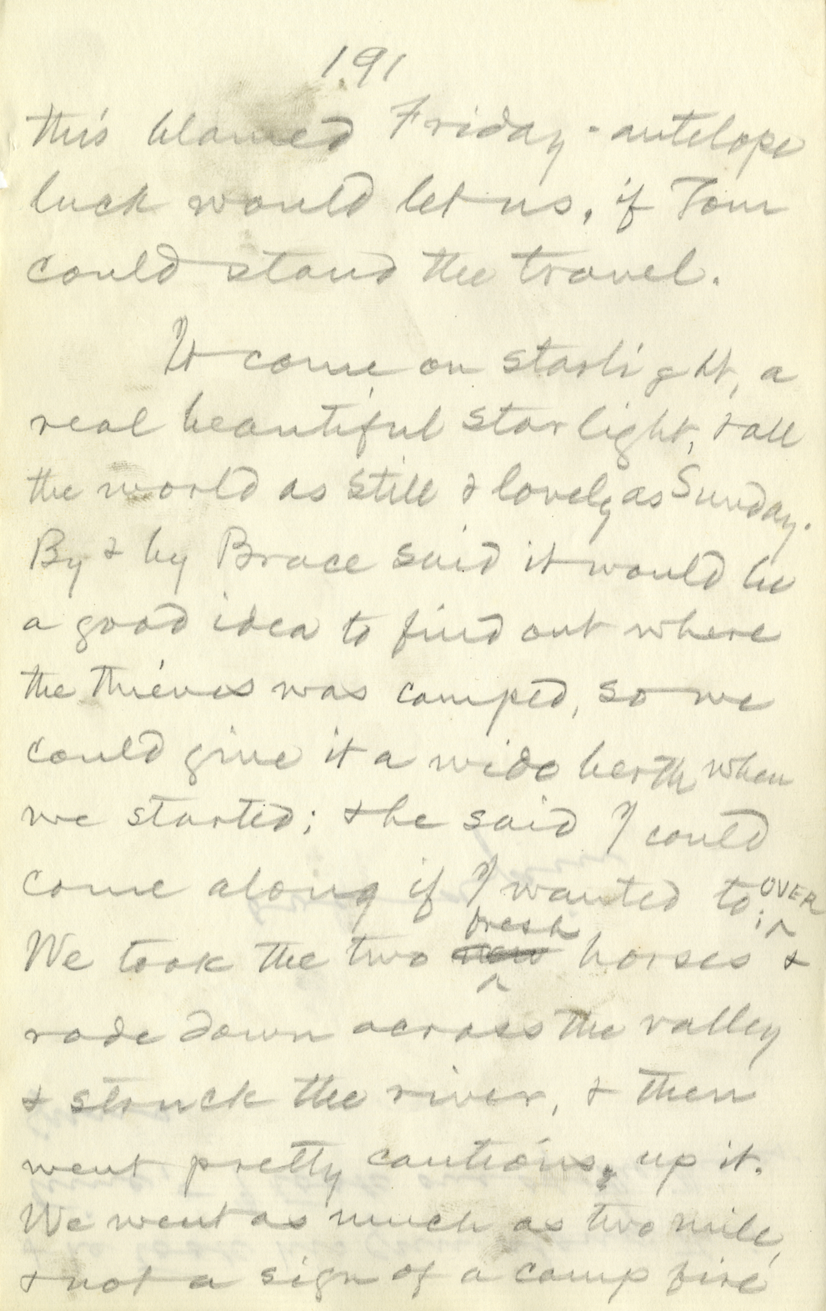 191
this blamed Friday-antelope
luck would let us, if Tom
could stand the travel.
It come on starlight, a
real beautiful starlight, & all
the world as still & lovely as Sunday.
By & by Brace said it would be
a good idea to find out where
the thieves was camped, so we
could give it a wide berth when
we started; & he said I could
come along if I wanted to; OVER
fresh
We took the two new horses &
rode down across the valley
& struck the river, & then
went pretty cautious, up it.
We went as much as two mile,
& not a sign of a camp fire